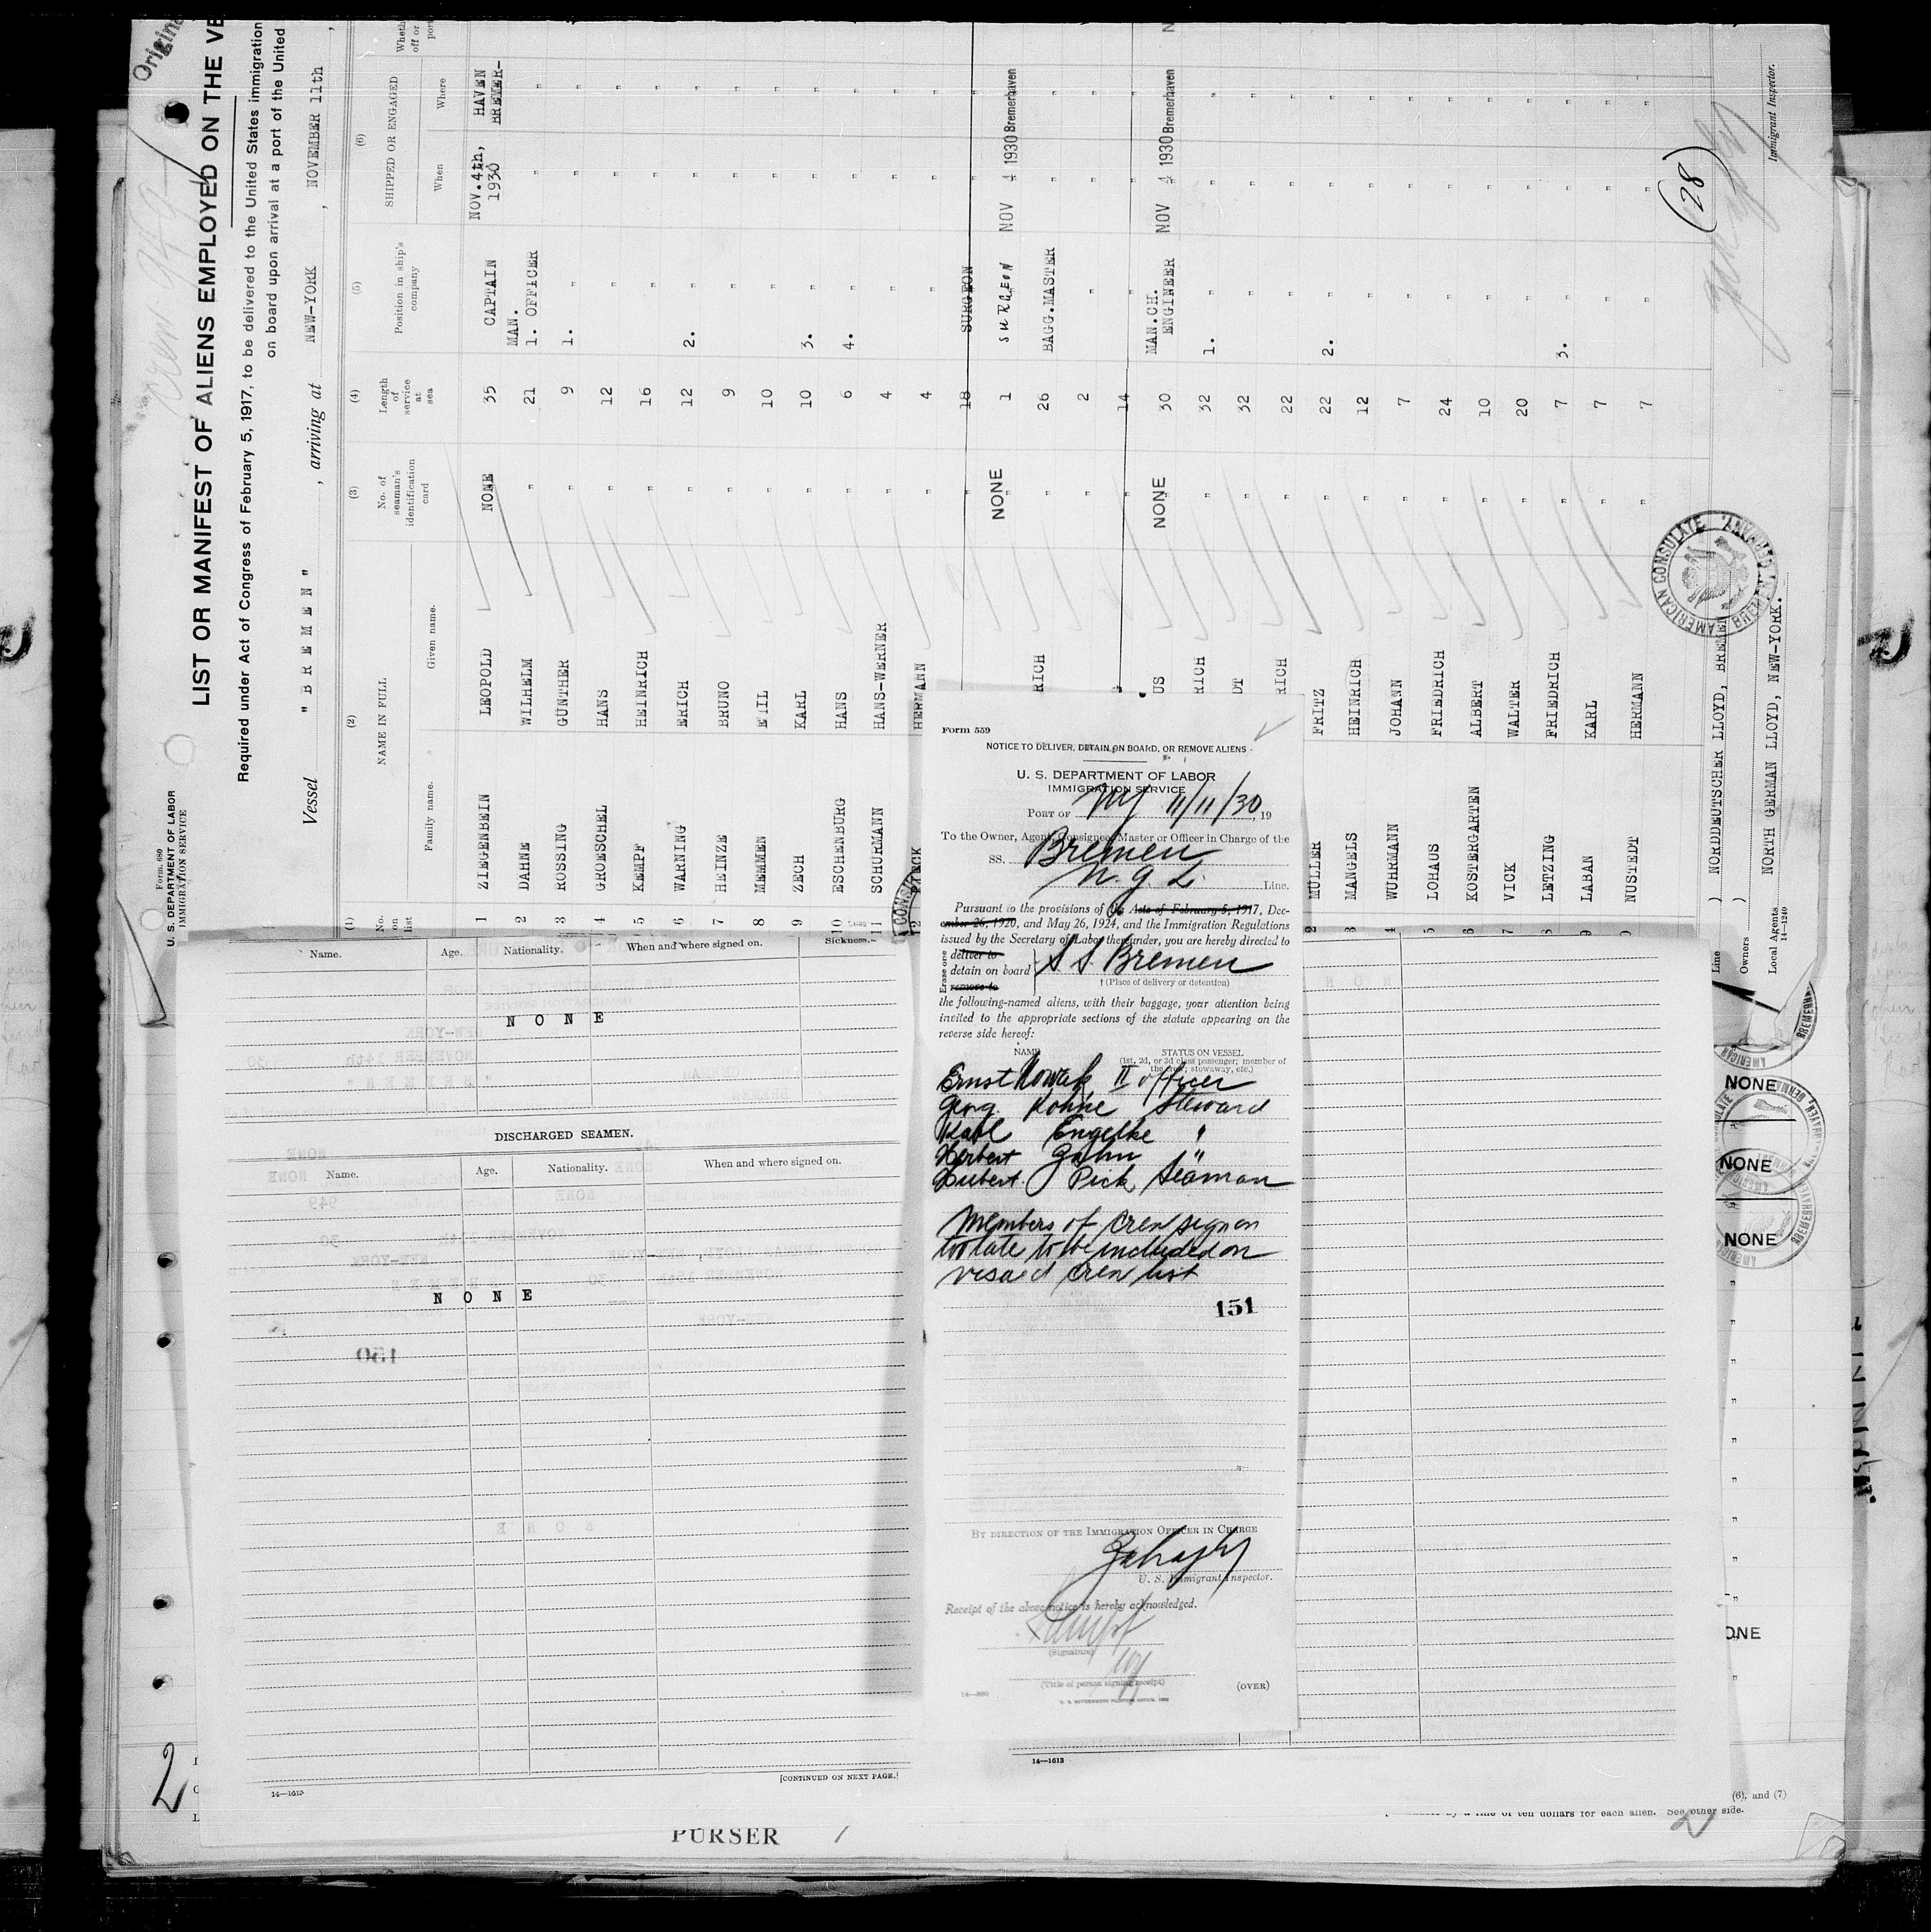 Original
Form 680
U. S. DEPARTMENT OF LABOR
IMMIGRATION SERVICE
LIST OR MANIFEST OF ALIENS EMPLOYED ON THE VE
Required under Act of Congress of February 5, 1917, to be delivered to the United States immigration
on board upon arrival at a port of the United
Vessel "BREMEN", arriving at NEW-YORK, NOVEMBER 11th,
(1) (2) (3) (4) (5) (6)
No. on list NAME IN FULL No. of seaman's identification card Length of service at sea Position in ship's company SHIPPED OR ENGAGED
Family name. Given name. When Where
1 ZIEGENBEIN LEOPOLD NONE 35 CAPTAIN NOV.4th, 1930 BREMER-HAVEN
2 DAHNE WILHELM " 21 MAN. 1. OFFICER " "
3 ROSSING GUNTHER " 9 1. " " "
4 GROESCHEL HANS " 12 " " "
5 KEMPF HEINRICH " 16 " " "
6 WARNING ERICH " 12 2. " " "
7 HEINZE BRUNO " 9 " " "
8 MEMMEN EMIL " 10 " " "
9 ZECH KARL " 10 3. " " "
10 ESCHENBURG HANS " 6 4. " " "
11 SCHURMANN HANS-WERNER " 4 " " "
12 HERMANN " 4 " " "
" 18 SURGEON " "
NONE 1 SURGEON NOV 4 1930 Bremerhaven
RICH " 26 BAGG.MASTER " "
" 2 " " "
" 14 " " "
US NONE 30 MAN.CH. ENGINEER NOV 4 1930 Bremerhaven
RICH " 32 1. " " "
DT " 32 " " "
RICH " 22 " " "
2 MÜLLER FRITZ " 22 2. " " "
3 MANGELS HEINRICH " 12 " " "
4 WUHRMANN JOHANN " 7 " " "
5 LOHAUS FRIEDRICH " 24 " " "
6 KOSTERGARTEN ALBERT " 10 " " "
7 VICK WALTER " 20 " " "
8 LETZING FRIEDRICH " 7 3. " " "
9 LABAN KARL " 7 " " "
0 NUSTEDT HERMANN " 7 " " "
(28)
Line ) NORDDEUTSCHER LLOYD, BREMEN
Owners )
Local Agents NORTH GERMAN LLOYD, NEW-YORK.
14—1240
Immigrant Inspector.
AMERICAN CONSULATE
Form 559
NOTICE TO DELIVER, DETAIN ON BOARD, OR REMOVE ALIENS
U. S. DEPARTMENT OF LABOR
IMMIGRATION SERVICE
PORT OF NY 11/11/30, 19
To the Owner, Agent, Consignee, Master or Officer in Charge of the
SS. Bremen
N.G.L. Line.
Pursuant to the provisions of the Acts of February 5, 1917, Dec-
ember 26, 1920, and May 26, 1924, and the Immigration Regulations
issued by the Secretary of Labor thereunder, you are hereby directed to
Erase one
deliver to
detain on board
remove to
S S. Bremen
† (Place of delivery or detention)
the following-named aliens, with their baggage, your attention being
invited to the appropriate sections of the statute appearing on the
reverse side hereof:
NAME STATUS ON VESSEL
(1st, 2d, or 3d class passenger; member of
the crew; stowaway, etc.)
Ernst Nowak II officer
Georg Kohne Steward
Karl Engelke "
Herbert Zahn "
Hubert Pick Seaman
Members of Crew sign on
too late to be included on
visaed crew list
151
BY DIRECTION OF THE IMMIGRATION OFFICER IN CHARGE
U. S. Immigrant Inspector.
Receipt of the above notice is hereby acknowledged.
(Signature)
(Title of person signing receipt)
(OVER)
Name. Age. Nationality. When and where signed on. Sickness.
NONE
DISCHARGED SEAMEN.
Name. Age. Nationality. When and where signed on.
NONE
150
[CONTINUED ON NEXT PAGE.]
14—1613
14—1613
PURSER
2
NONE
NONE
NONE
ONE
(6), and (7)
of ten dollars for each alien. See other side.